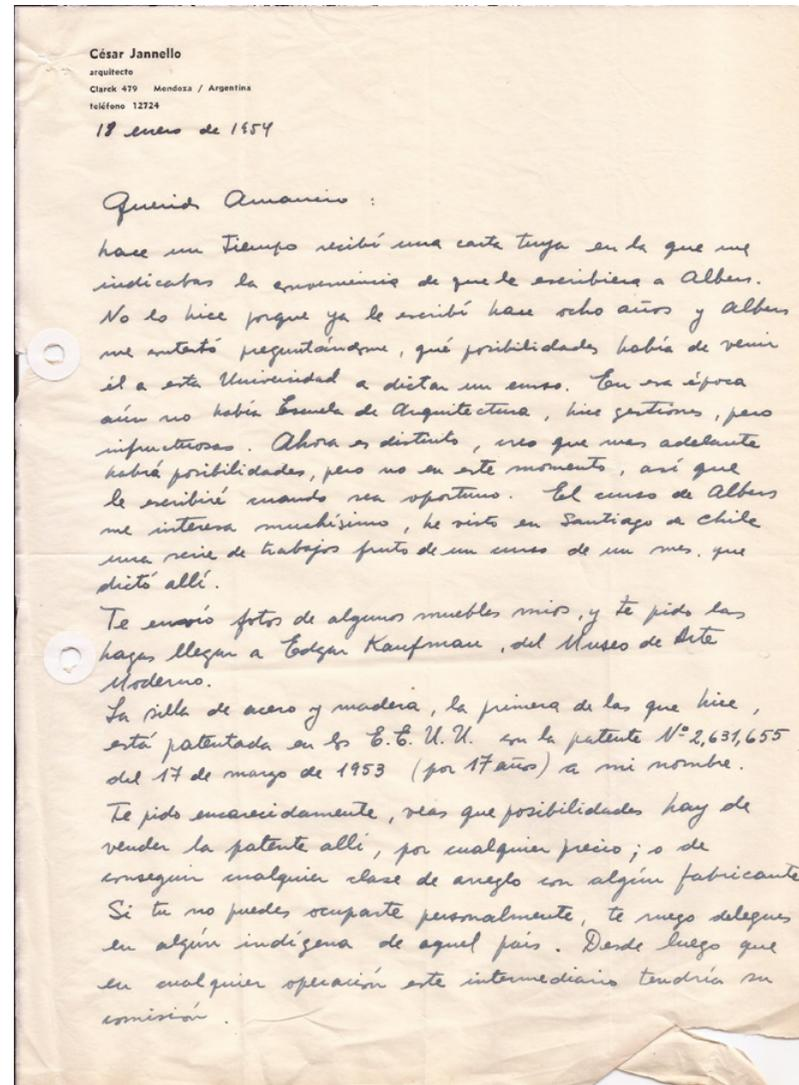 César Jannello
arquitecto
Clarck 479 Mendoza / Argentina
teléfono 12724
18 enero de 1954
Querido Amancio :
hace un tiempo recibí una carta tuya en la que me
indicabas la conveniencia de que le escribiera a Albers.
No lo hice porque ya le escribí hace ocho años y Albers
me contestó preguntándome, qué posibilidades había de venir
él a esta Universidad a dictar un curso. En esa época
aún no había Escuela de Arquitectura, hice gestiones, pero
infructuosas. Ahora es distinto, creo que mas adelante
habrá posibilidades, pero no en este momento, así que
le escribiré cuando sea oportuno. El curso de Albers
me interesa muchísimo, he visto en Santiago de Chile
una serie de trabajos fruto de un curso de un mes. que
dictó allí.
Te envío fotos de algunos muebles mios, y te pido las
hagas llegar a Edgar Kaufman, del Museo de Arte
Moderno.
La silla de acero y madera, la primera de las que hice,
está patentada en los E.E.U.U. con la patente Nº 2,631,655
del 17 de marzo de 1953 (por 17 años) a mi nombre.
Te pido encarecidamente, veas que posibilidades hay de
vender la patente allí, por cualquier precio; o de
conseguir cualquier clase de arreglo con algún fabricante
Si tu no puedes ocuparte personalmente, te ruego delegues
en algún indígena de aquel país. Desde luego que
en cualquier operación este intermediario tendría su
comisión.